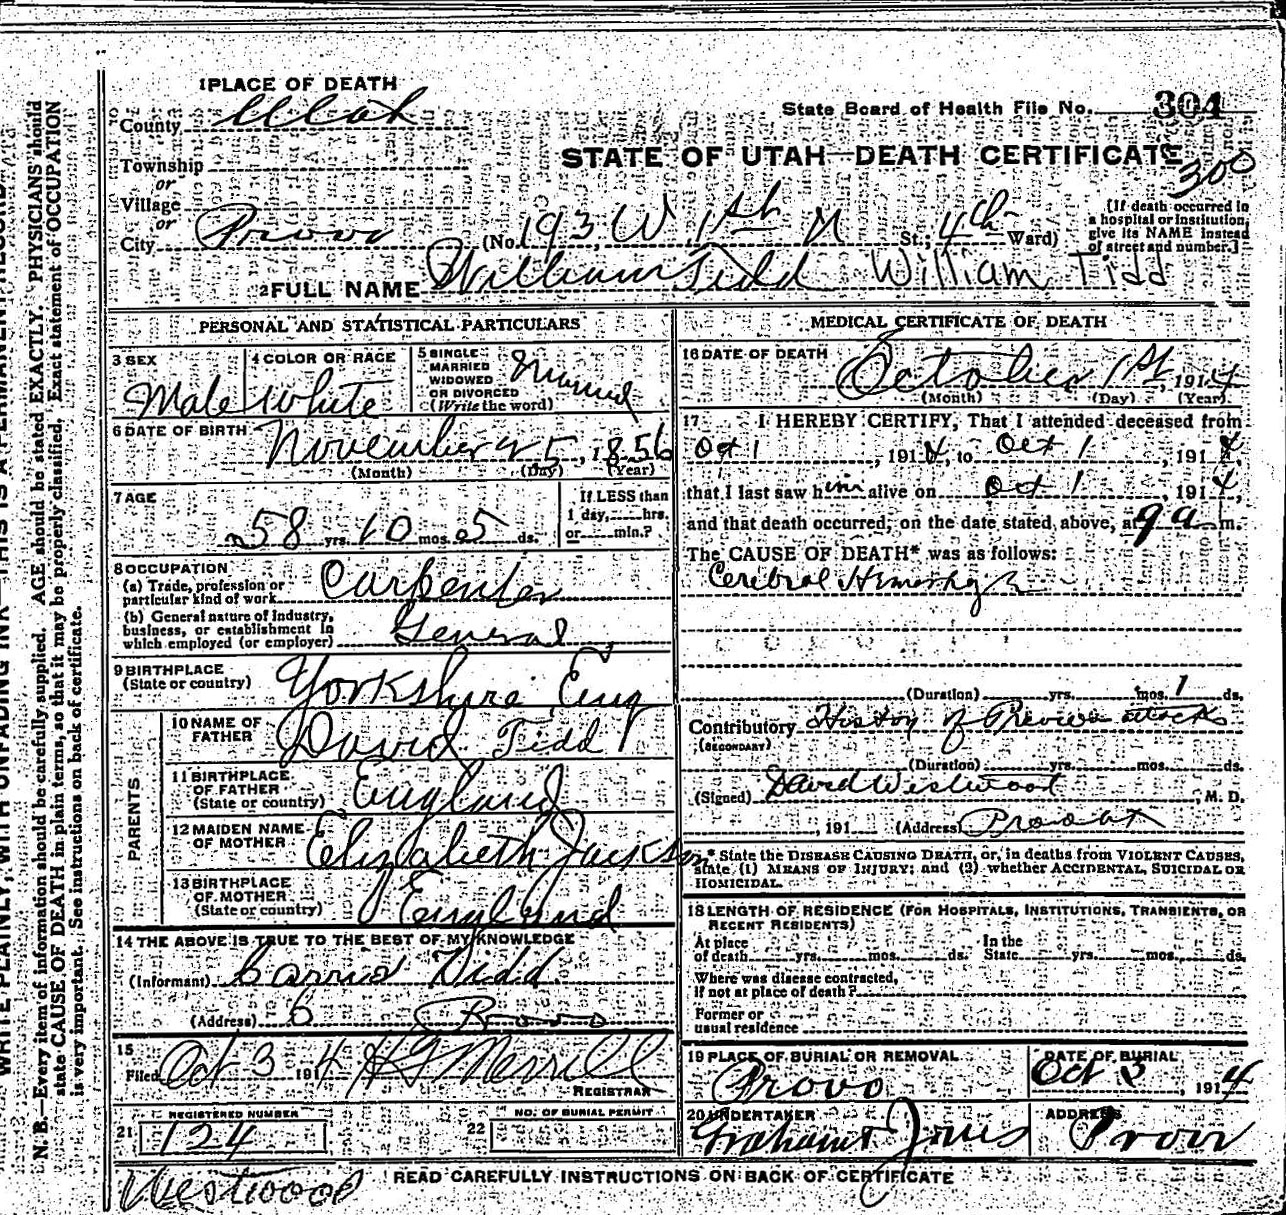 1 PLACE OF DEATH
County Utah
State Board of Health File No. 304
Township
or
Village
or
City Provo
STATE OF UTAH—DEATH CERTIFICATE
300
(No. 193 W 1st N St., 4th Ward)
(If death occurred in
a hospital or institution,
give its NAME instead
of street and number.)
2 FULL NAME William Tidd William Tidd
PERSONAL AND STATISTICAL PARTICULARS
3 SEX Male
4 COLOR OR RACE White
5 SINGLE
MARRIED
WIDOWED
OR DIVORCED
(Write the word) Married
6 DATE OF BIRTH November 25, 1856
(Month) (Day) (Year)
7 AGE
58 yrs. 10 mos. 5 ds.
If LESS than
1 day, hrs.
or min.?
8 OCCUPATION
(a) Trade, profession or
particular kind of work Carpenter
(b) General nature of Industry,
business, or establishment in
which employed (or employer) General
9 BIRTHPLACE
(State or country) Yorkshire Eng
PARENTS
10 NAME OF
FATHER David Tidd
11 BIRTHPLACE
OF FATHER
(State or country) England
12 MAIDEN NAME
OF MOTHER Elizabeth Jackson
13 BIRTHPLACE
OF MOTHER
(State or country) England
14 THE ABOVE IS TRUE TO THE BEST OF MY KNOWLEDGE
(Informant) Carrie Tidd
(Address) Provo
15
Filed Oct 3 1914 Merrill
REGISTRAR
REGISTERED NUMBER
21 124
NO. OF BURIAL PERMIT
22
MEDICAL CERTIFICATE OF DEATH
16 DATE OF DEATH
October 1st, 1914
(Month) (Day) (Year)
17 I HEREBY CERTIFY, That I attended deceased from
Oct 1, 1914, to Oct 1, 1914,
that I last saw him alive on Oct 1, 1914,
and that death occurred, on the date stated above, at 9 a m.
The CAUSE OF DEATH* was as follows:
Cerebral Hemorhage
(Duration) yrs. mos. 1 ds.
Contributory History of Previous attacks
(SECONDARY)
(Duration) yrs. mos. ds.
(Signed) David Westwood, M. D.
, 191 (Address) Provo Ut
* State the DISEASE CAUSING DEATH, or, in deaths from VIOLENT CAUSES,
state (1) MEANS OF INJURY; and (2) whether ACCIDENTAL, SUICIDAL OR
HOMICIDAL.
18 LENGTH OF RESIDENCE (FOR HOSPITALS, INSTITUTIONS, TRANSIENTS, OR
RECENT RESIDENTS)
At place
of death yrs. mos. ds.
In the
State yrs. mos. ds.
Where was disease contracted,
If not at place of death?
Former or
usual residence
19 PLACE OF BURIAL OR REMOVAL
Provo
DATE OF BURIAL
Oct 3 1914
20 UNDERTAKER
Graham Jones
ADDRESS
Provo
READ CAREFULLY INSTRUCTIONS ON BACK OF CERTIFICATE
Westwood
N. B.—Every item of information should be carefully supplied. AGE should be stated EXACTLY. PHYSICIANS should
state CAUSE OF DEATH in plain terms, so that it may be properly classified. Exact statement of OCCUPATION
is very important. See instructions on back of certificate.
WRITE PLAINLY, WITH UNFADING INK—THIS IS A PERMANENT RECORD